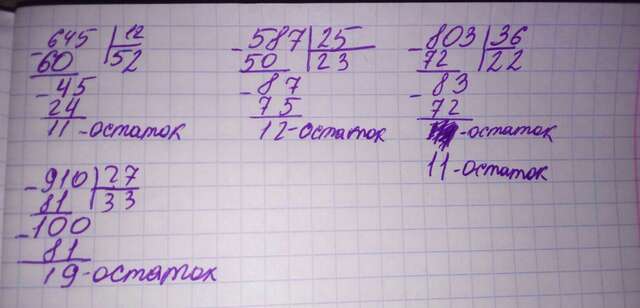 -645 | 12
60 | 52
-45
24
11-остаток
-587 | 25
50 | 23
-87
75
12-остаток
-803 | 36
72 | 22
-83
72
-остаток
11-остаток
-910 | 27
81 | 33
-100
81
19-остаток